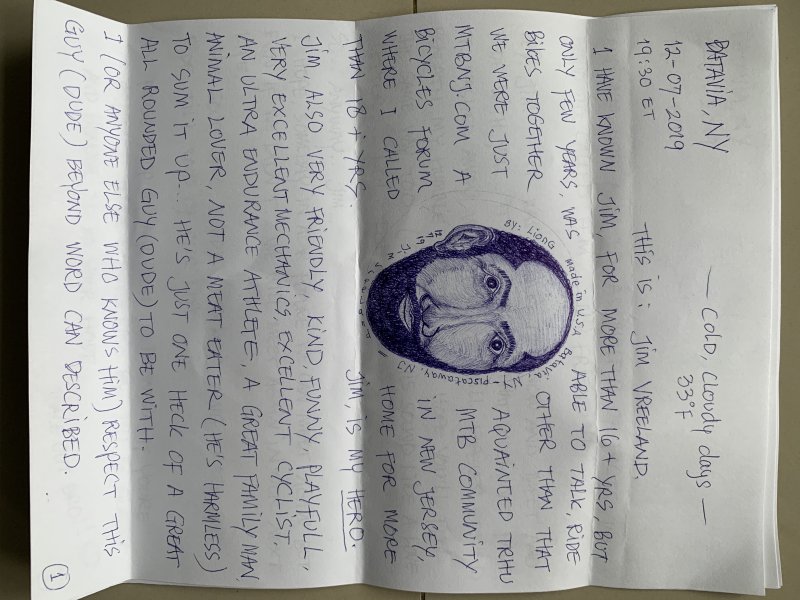 BATAVIA, NY
12-07-2019
19:30 ET
— COLD, cloudy days —
33°F
THIS IS: JIM VREELAND.
I HAVE KNOWN JIM, FOR MORE THAN 16+ YRS, BUT
ONLY FEW YEARS, WAS ABLE TO TALK, RIDE
BIKES TOGETHER OTHER THAN THAT
WE WERE JUST AQUAINTED TRHU
MTBNJ.COM A MTB COMMUNITY
BICYCLES FORUM IN NEW JERSEY,
WHERE I CALLED HOME FOR MORE
THAN 18 + YRS. JIM, IS MY HERO.
BY: LIONG made in U.S.A Batavia, NY - piscataway, NJ
12 7 19
JIM, ALSO VERY FRIENDLY, KIND, FUNNY, PLAYFULL,
VERY EXCELLENT MECHANICS, EXCELLENT CYCLIST,
AN ULTRA ENDURANCE ATHLETE, A GREAT FAMILY MAN,
ANIMAL LOVER, NOT A MEAT EATER (HE'S HARMLESS)
TO SUM IT UP... HE'S JUST ONE HECK OF A GREAT
ALL ROUNDED GUY (DUDE) TO BE WITH.
I (OR ANYONE ELSE WHO KNOWS HIM) RESPECT THIS
GUY (DUDE) BEYOND WORD CAN DESCRIBED.
1